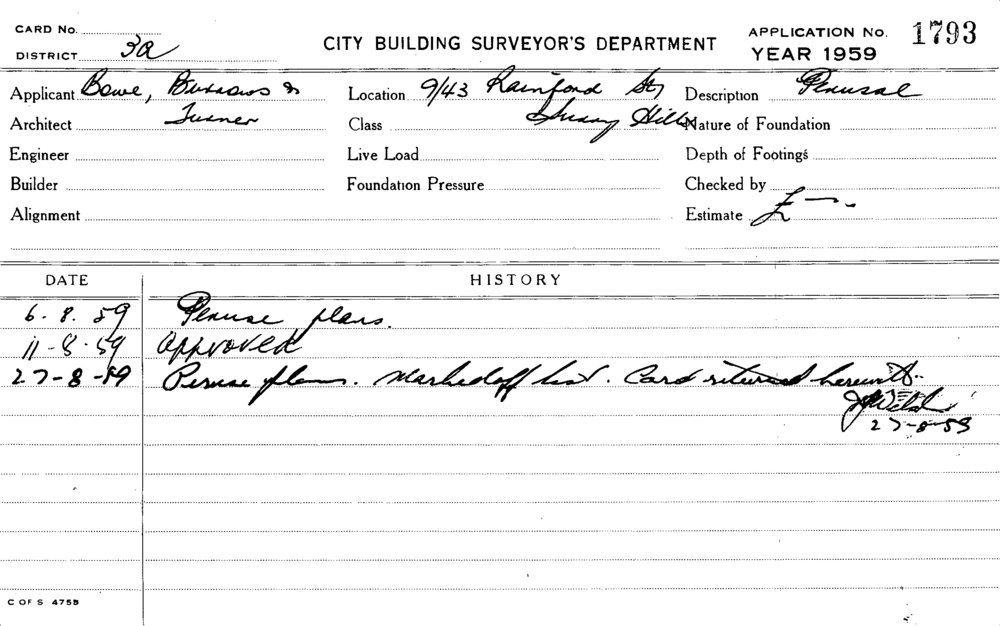 CARD No.
DISTRICT 3a
CITY BUILDING SURVEYOR'S DEPARTMENT
APPLICATION No. 1793
YEAR 1959
Applicant Bowe, Burrows &
Location 9/43 Rainford St,
Description Perusal
Architect Turner
Class Surry Hills
Nature of Foundation
Engineer
Live Load
Depth of Footings
Builder
Foundation Pressure
Checked by
Alignment
Estimate £ —.
DATE HISTORY
6. 8. 59 Peruse plans.
11-8-59 Approved
27-8-59 Peruse plans. Marked off list. Card returned herewith.
27-8-59
C OF S 475B